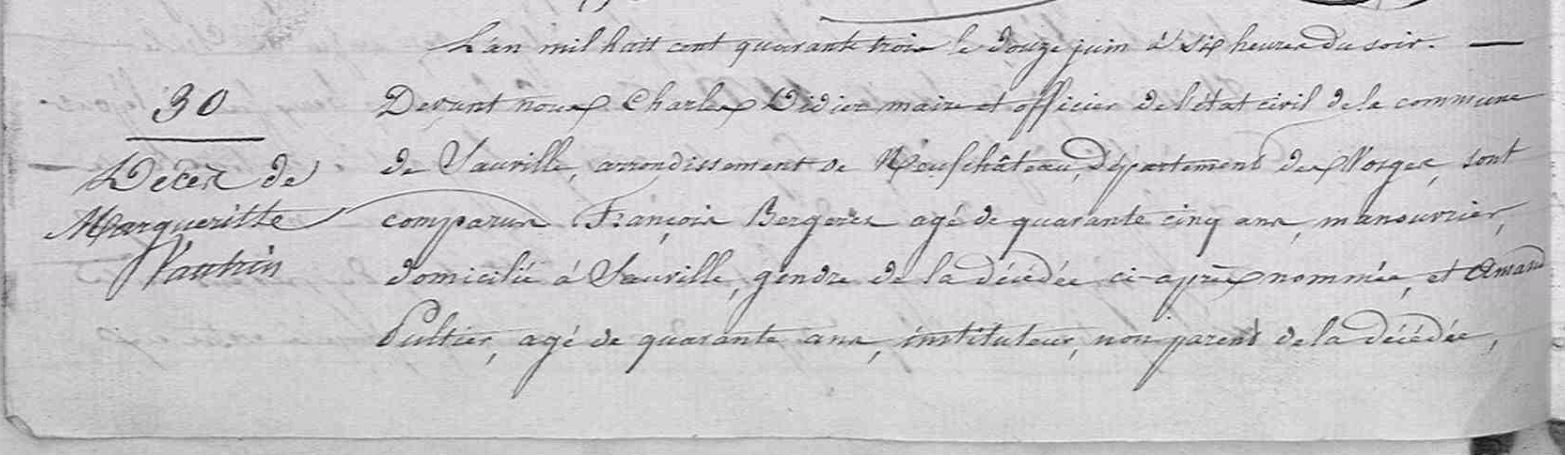 L'an mil huit cent quarante trois le douze juin à six heures du soir.
30
Décès de
Margueritte
Vautrin
Devant nous Charles Didier maire et officier de l'état civil de la commune
de Sauville, arrondissement de Neufchâteau, département des Vosges, sont
comparus François Bergeret agé de quarante cinq ans, manouvrier,
domicilié à Sauville, gendre de la décédée ci-après nommée, et Amand
Pultier, agé de quarante ans, instituteur, non parent de la décédée,